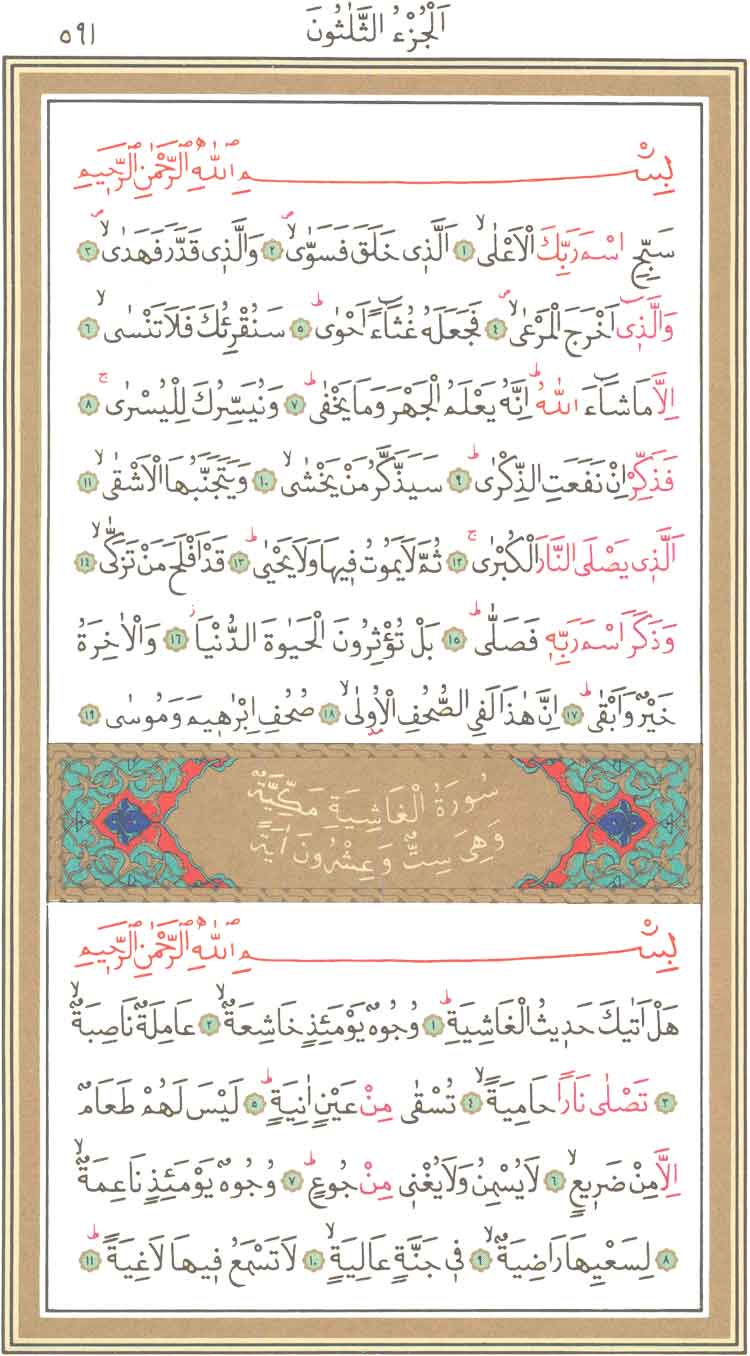 اَلْجُزْءُ الثَّلٰثُونَ ٥٩١
بِسْمِ اللّٰهِ الرَّحْمٰنِ الرَّح۪يمِ
سَبِّحِ اسْمَ رَبِّكَ الْاَعْلٰىۙ ١ اَلَّذ۪ي خَلَقَ فَسَوّٰىۙۖ ٢ وَالَّذ۪ي قَدَّرَ فَهَدٰىۙۖ ٣
وَالَّذ۪ٓي اَخْرَجَ الْمَرْعٰىۙۖ ٤ فَجَعَلَهُ غُثَٓاءً اَحْوٰىۜ ٥ سَنُقْرِئُكَ فَلَا تَنْسٰىۙ ٦
اِلَّا مَا شَٓاءَ اللّٰهُۜ اِنَّهُ يَعْلَمُ الْجَهْرَ وَمَا يَخْفٰىۜ ٧ وَنُيَسِّرُكَ لِلْيُسْرٰىۚ ٨
فَذَكِّرْ اِنْ نَفَعَتِ الذِّكْرٰىۜ ٩ سَيَذَّكَّرُ مَنْ يَخْشٰىۙ ١٠ وَيَتَجَنَّبُهَا الْاَشْقٰىۙ ١١
اَلَّذ۪ي يَصْلَى النَّارَ الْكُبْرٰىۚ ١٢ ثُمَّ لَا يَمُوتُ ف۪يهَا وَلَا يَحْيٰىۜ ١٣ قَدْ اَفْلَحَ مَنْ تَزَكّٰىۙ ١٤
وَذَكَرَ اسْمَ رَبِّه۪ فَصَلّٰىۜ ١٥ بَلْ تُؤْثِرُونَ الْحَيٰوةَ الدُّنْيَاۘ ١٦ وَالْاٰخِرَةُ
خَيْرٌ وَاَبْقٰىۜ ١٧ اِنَّ هٰذَا لَفِي الصُّحُفِ الْاُو۫لٰىۙ ١٨ صُحُفِ اِبْرٰه۪يمَ وَمُوسٰى ١٩
سُورَةُ الْغَاشِيَةِ مَكِّيَّةٌ
وَهِيَ سِتٌّ وَعِشْرُونَ اٰيَةً
بِسْمِ اللّٰهِ الرَّحْمٰنِ الرَّح۪يمِ
هَلْ اَتٰيكَ حَد۪يثُ الْغَاشِيَةِۜ ١ وُجُوهٌ يَوْمَئِذٍ خَاشِعَةٌۙ ٢ عَامِلَةٌ نَاصِبَةٌۙ
٣ تَصْلٰى نَارًا حَامِيَةًۙ ٤ تُسْقٰى مِنْ عَيْنٍ اٰنِيَةٍۜ ٥ لَيْسَ لَهُمْ طَعَامٌ
اِلَّا مِنْ ضَر۪يعٍۙ ٦ لَا يُسْمِنُ وَلَا يُغْن۪ي مِنْ جُوعٍۜ ٧ وُجُوهٌ يَوْمَئِذٍ نَاعِمَةٌۙ
٨ لِسَعْيِهَا رَاضِيَةٌۙ ٩ ف۪ي جَنَّةٍ عَالِيَةٍۙ ١٠ لَا تَسْمَعُ ف۪يهَا لَاغِيَةًۜ ١١